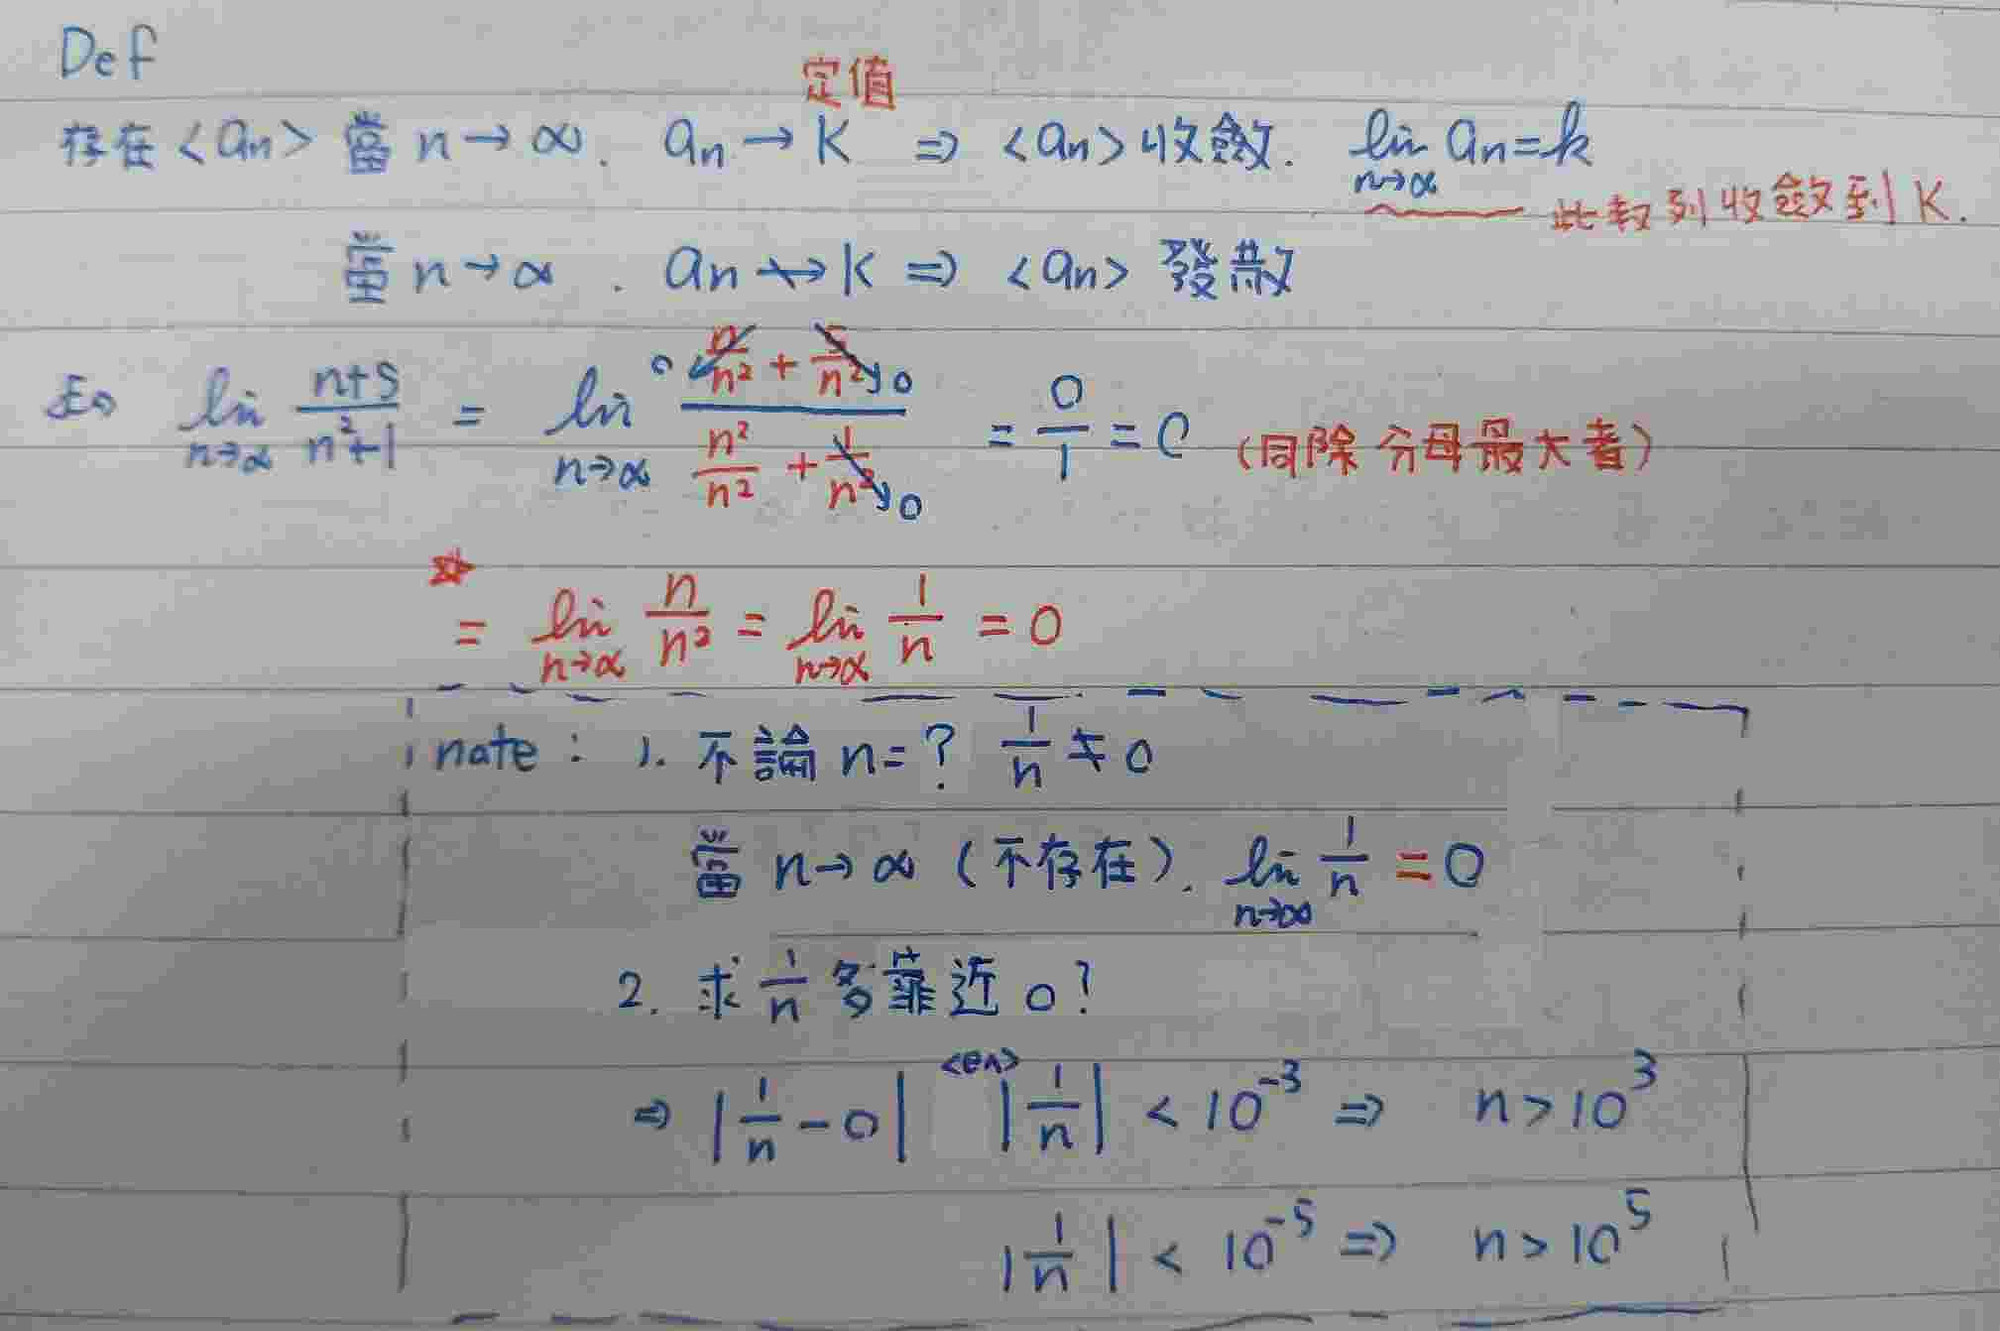 Def
定值
存在 <an> 當 n→∞. an→K ⇒ <an> 收斂. lim n→∞ an=k
此數列收斂到 K.
當 n→∞. an↛k ⇒ <an> 發散
lim n→∞ (n+5)/(n²+1) = lim n→∞ (n/n² + 5/n²)/(n²/n² + 1/n²) = 0/1 = 0 (同除分母最大者)
☆ = lim n→∞ n/n² = lim n→∞ 1/n = 0
nate : 1. 不論 n=? 1/n ≠ 0
當 n→∞ (不存在). lim n→∞ 1/n = 0
2. 求 1/n 多靠近 0?
⇒ |1/n - 0| |1/n| < 10⁻³ ⇒ n > 10³
|1/n| < 10⁻⁵ ⇒ n > 10⁵